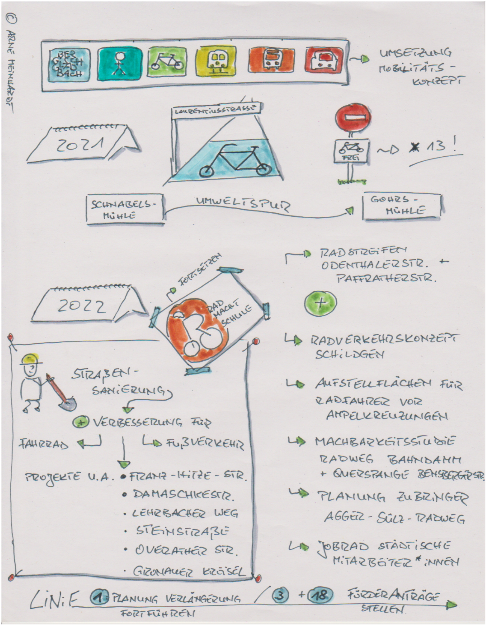 © ARNE MEINHARDT
BER
GISCH
GLAD
BACH
UMSETZUNG
MOBILITÄTS-
KONZEPT
2021
LAURENTIUSSTRASSE
FREI
x 13!
SCHNABELS-
MÜHLE
UMWELTSPUR
GOHRS-
MÜHLE
2022
FORTSETZEN
RAD
MACHT
SCHULE
RADSTREIFEN
ODENTHALERSTR. +
PAFFRATHERSTR.
+
RADVERKEHRSKONZEPT
SCHILDGEN
AUFSTELLFLÄCHEN FÜR
RADFAHRER VOR
AMPELKREUZUNGEN
MACHBARKEITSSTUDIE
RADWEG BAHNDAMM
+ QUERSPANGE BENSBERGERSTR.
PLANUNG ZUBRINGER
AGGER-SÜLZ-RADWEG
JOBRAD STÄDTISCHE
MITARBEITER*INNEN
STRAßEN-
SANIERUNG
+ VERBESSERUNG FÜR
FAHRRAD
FUßVERKEHR
PROJEKTE U.A. • FRANZ-HITZE-STR.
• DAMASCHKESTR.
• LEHRBACHER WEG
• STEINSTRAßE
• OVERATHER STR.
• GRONAUER KREISEL
LINIE 1 PLANUNG VERLÄNGERUNG
FORTFÜHREN
3 + 18 FÖRDERANTRÄGE
STELLEN